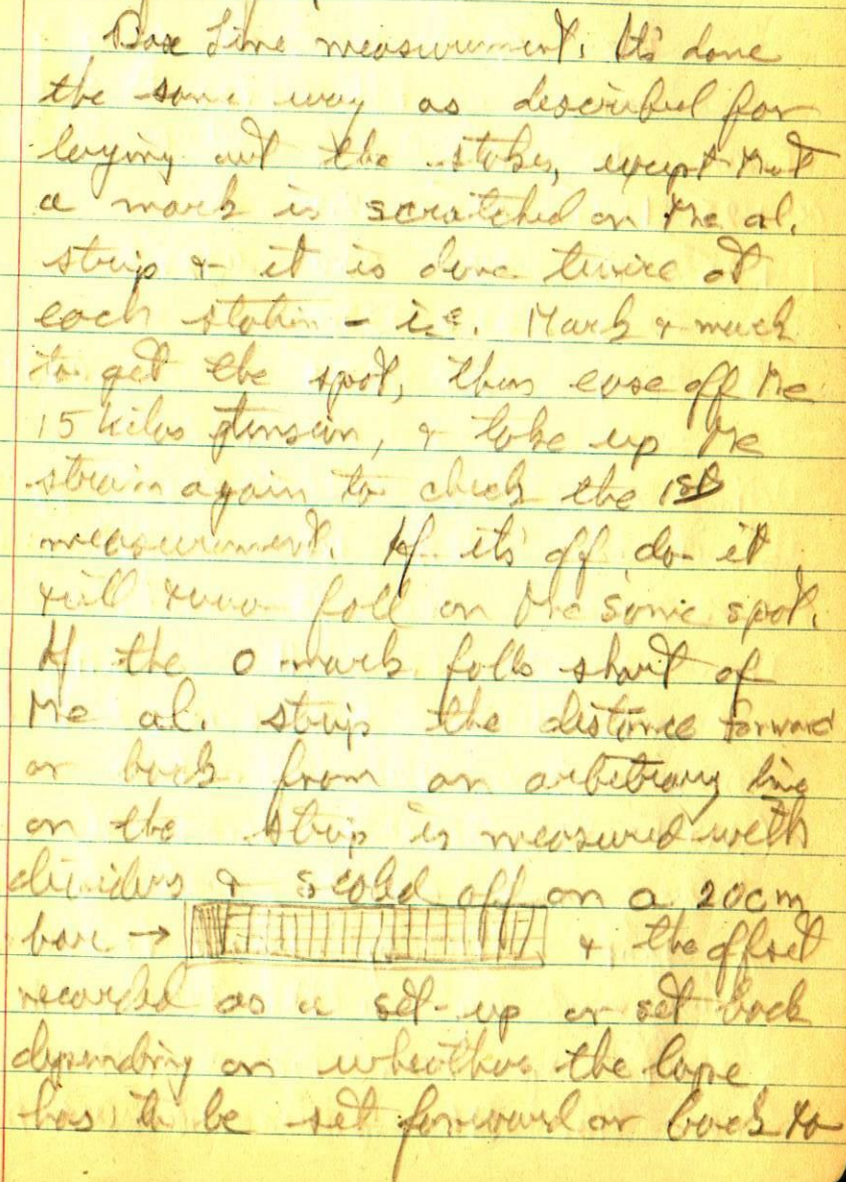 Base Line measurement. It's done
the same way as described for
laying out the stakes, except that
a mark is scratched on the al.
strip & it is done twice at
each station - i.e. Mark &
to get the spot, then ease off the
15 kilos tension, & take up the
strain again to check the 1st
measurement. If it's off do it
till fall on the same spot.
If the 0 mark falls short of
the al. strip the distance forward
or back from an arbitrary line
on the strip is measured with
dividers & scaled off on a 20cm
bar → & the offset
recorded as a set-up or set back
depending on wheather the tape
has to be set forward or back to